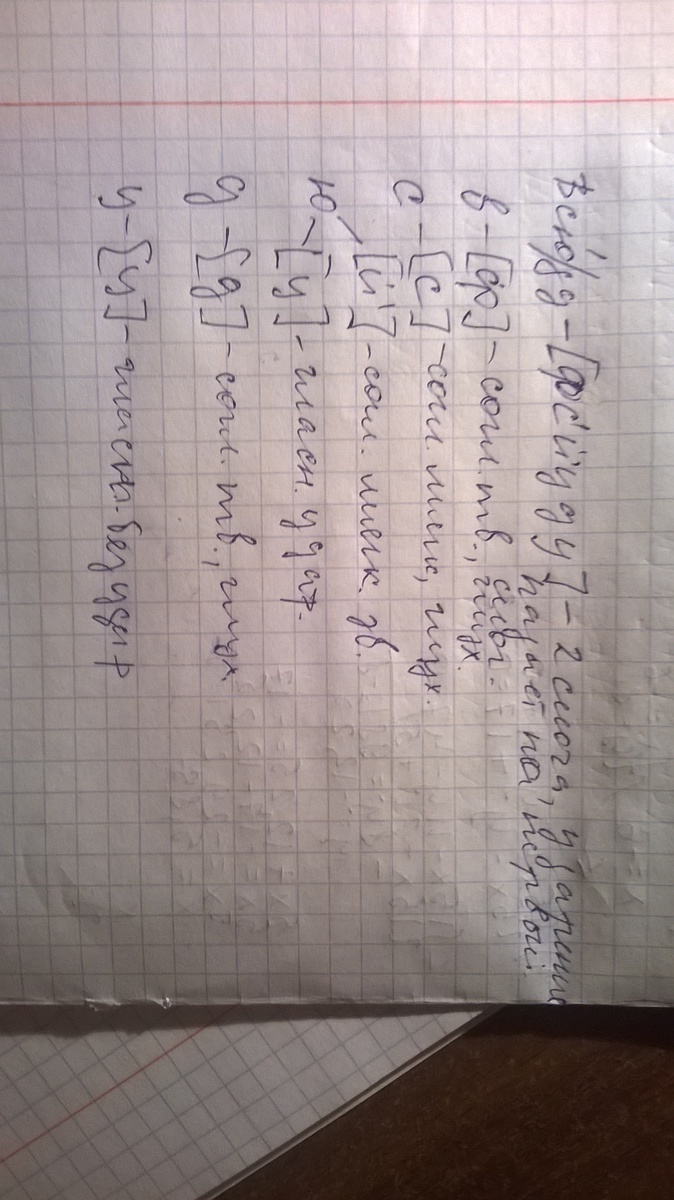 Всю́/ду – [фс'й'уду] – 2 слога, ударение
падает на первый
слог.
в – [ф] – согл. тв., глух.
с – [с] – согл. мягк, глух.
ю – [й'] – согл. мягк. зв.
[у] – гласн. удар.
д – [д] – согл. тв., глух.
у – [у] – гласн. безудар